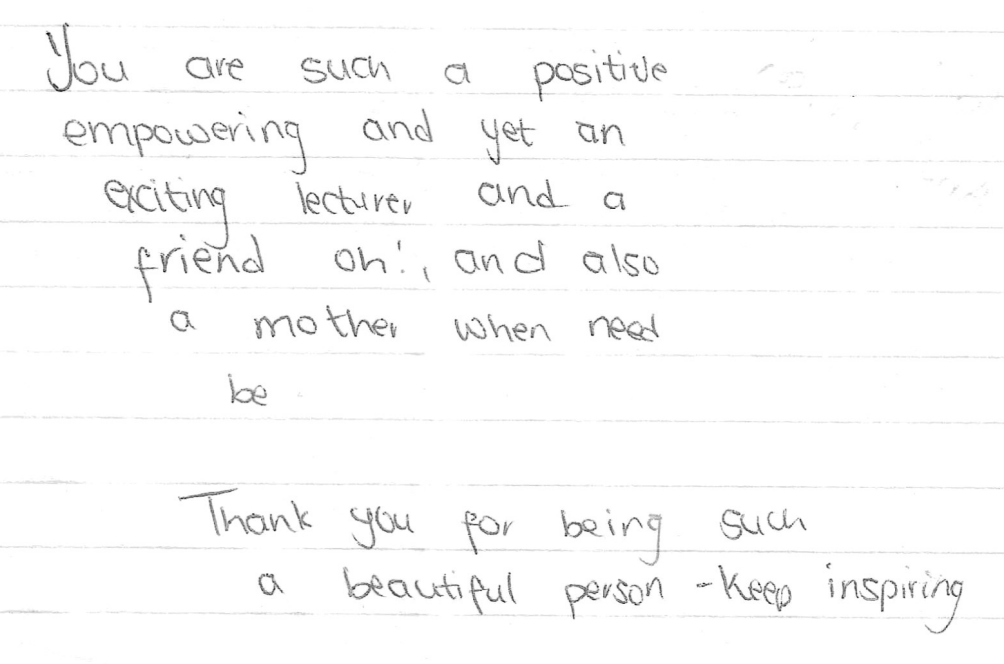 You are such a positive
empowering and yet an
exciting lecturer and a
friend oh!, and also
a mother when need
be
Thank you for being such
a beautiful person - Keep inspiring